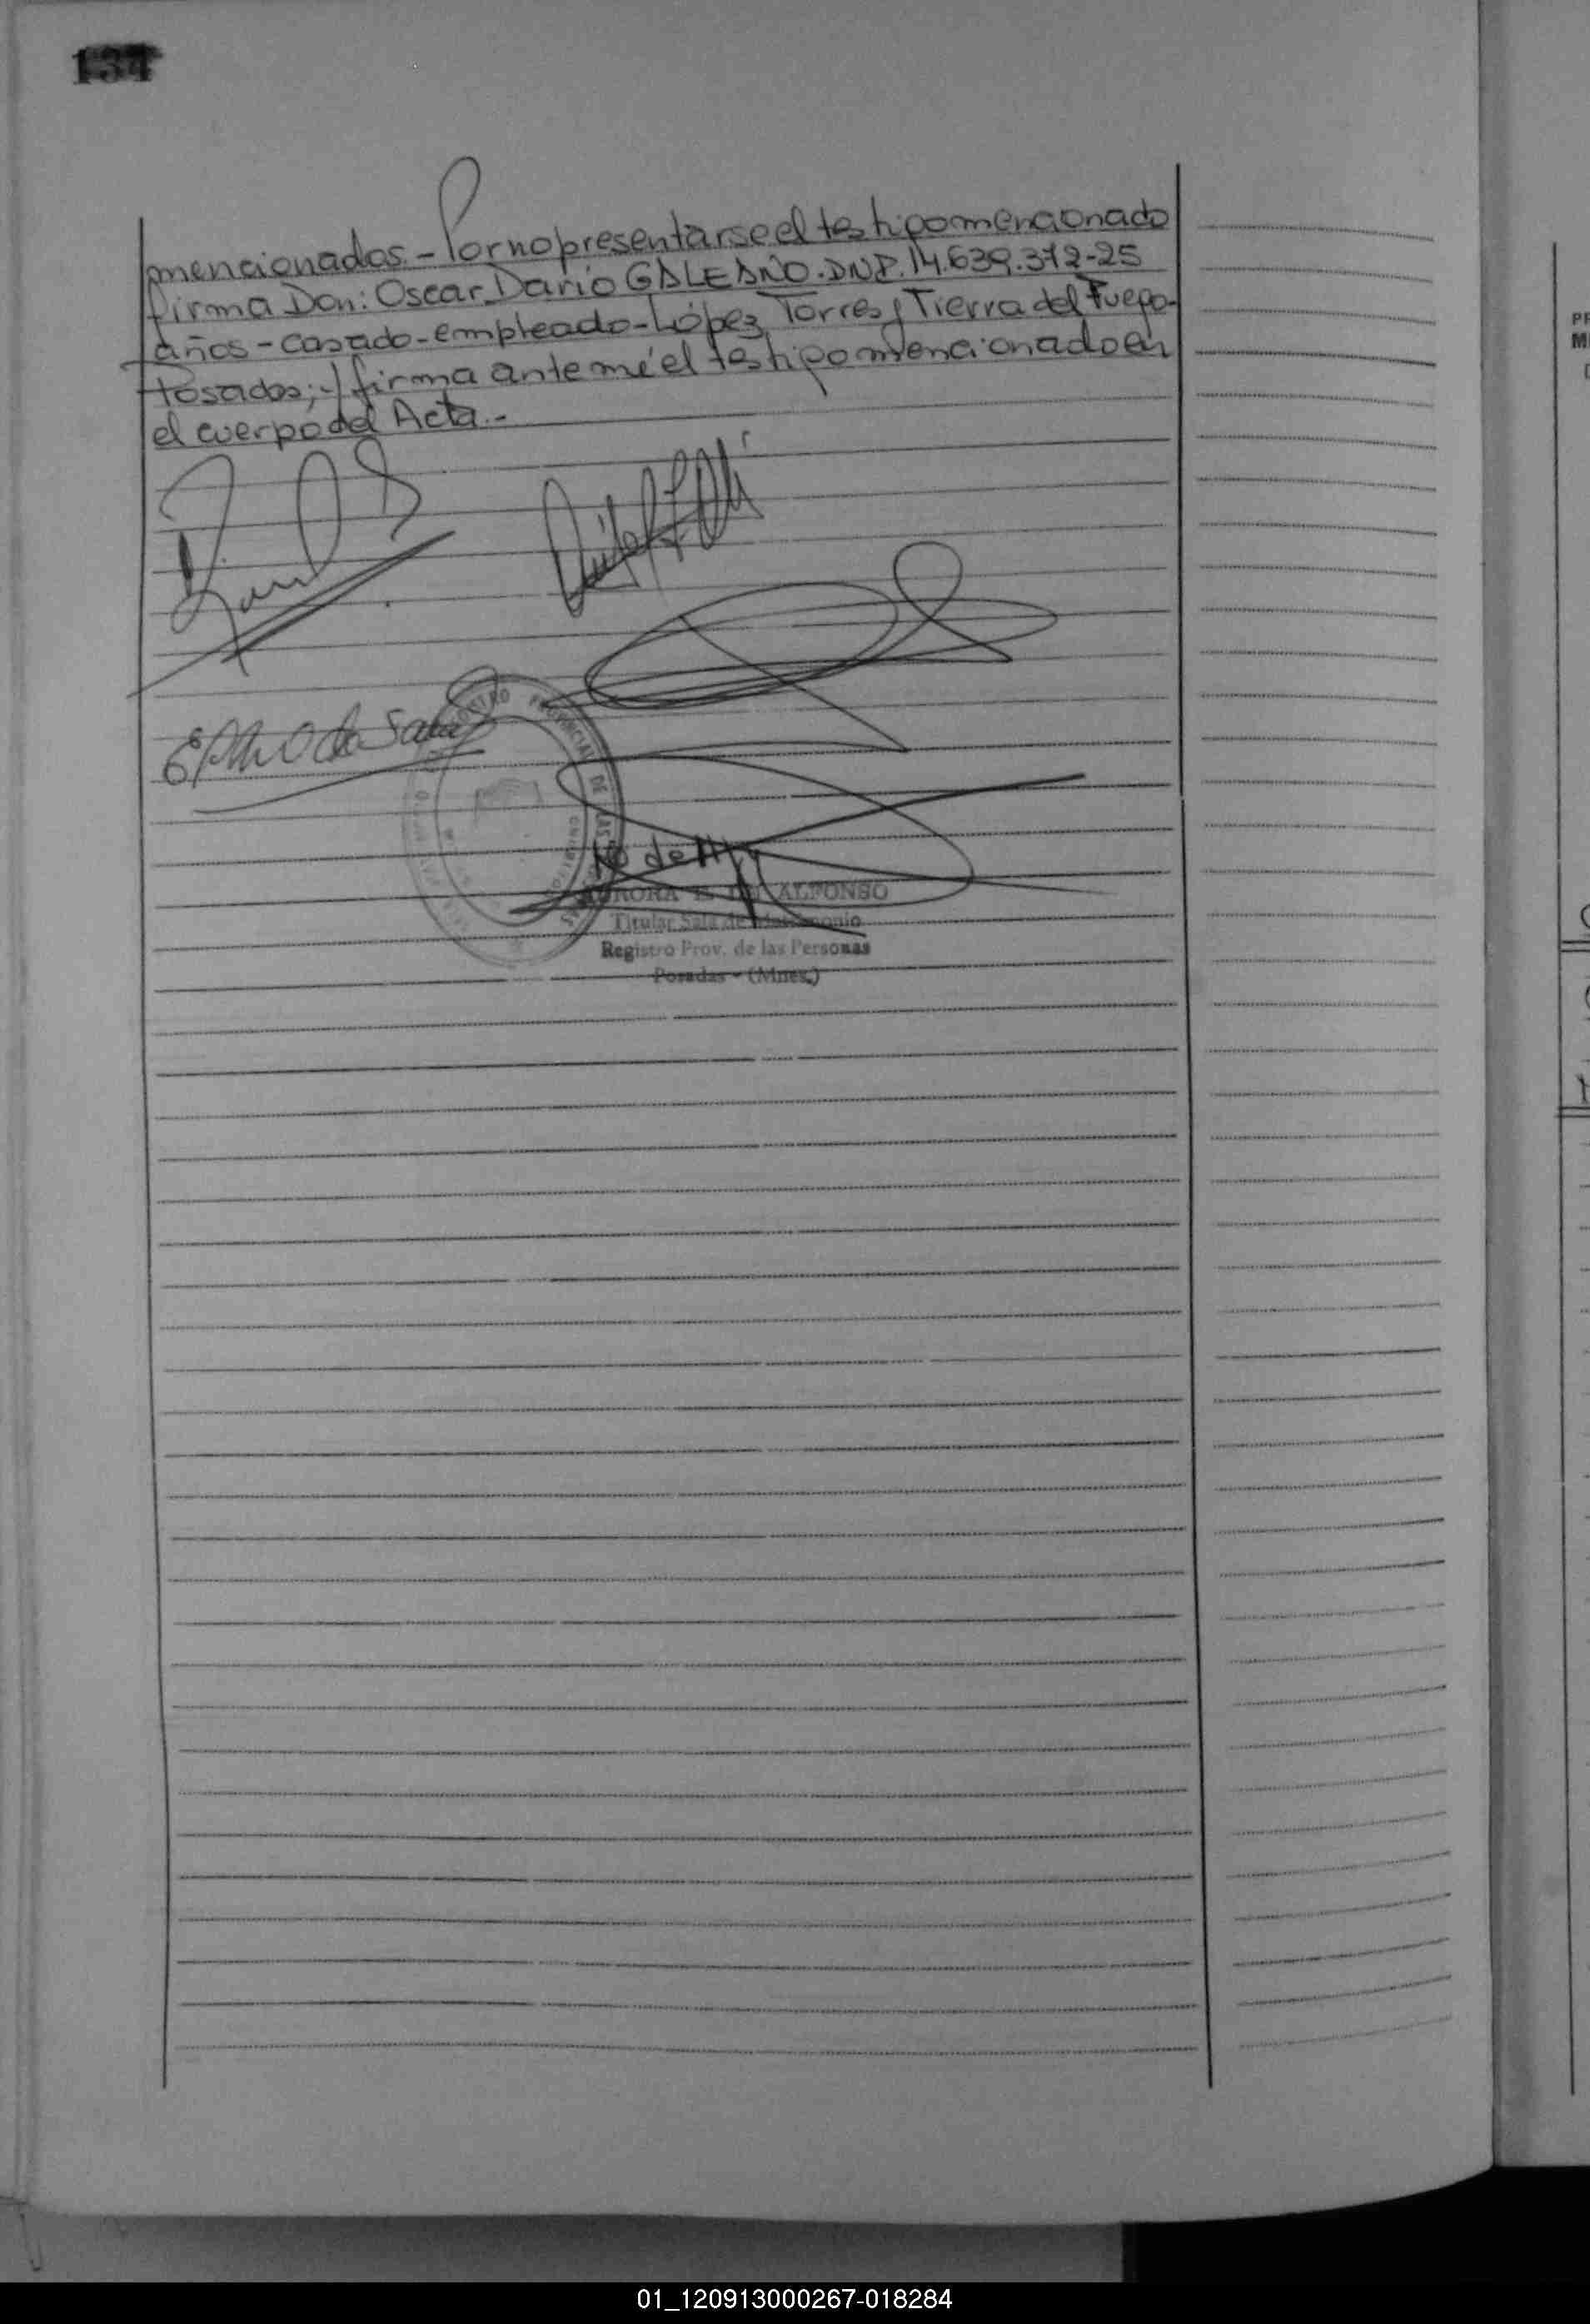 134
mencionados.- Por no presentarse el testigo mencionado
firma Don: Oscar Dario GALEANO. DNI. 14.639.372-25
años - casado - empleado - López Torres y Tierra del Fuego-
Posadas; y firma ante mí el testigo mencionado en
el cuerpo del Acta.-
PROVINCIAL DE LAS
AURORA E. DE ALFONSO
Titular Sala de Matrimonio
Registro Prov. de las Personas
Posadas - (Mnes.)
PR
MI
01_120913000267-018284